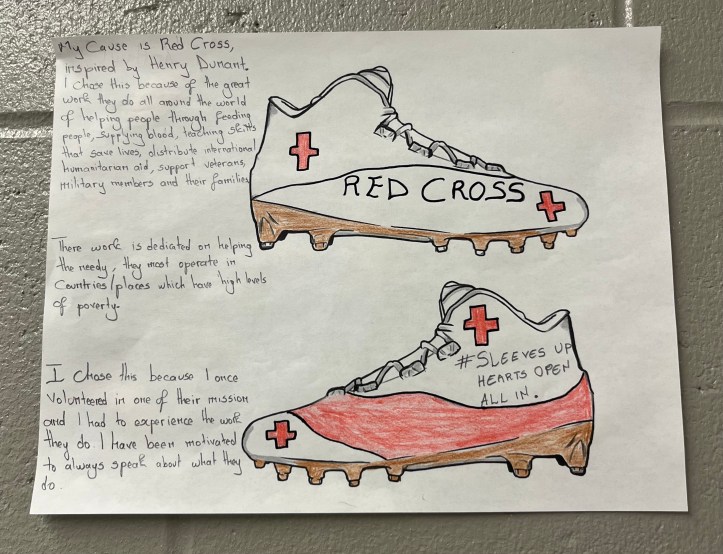 My Cause is Red Cross,
inspired by Henry Dunant.
I chose this because of the great
work they do all around the world
of helping people through feeding
people, supplying blood, teaching skills
that save lives, distribute international
humanitarian aid, support veterans,
military members and their families
There work is dediated on helping
the needy, they most operate in
Countries/places which have high levels
of poverty.
I chose this because I once
Volunteered in one of their mission
and I had to experience the work
they do. I have been motivated
to always speak about what they
do.
RED CROSS
#SLEEVES UP
HEARTS OPEN
ALL IN.